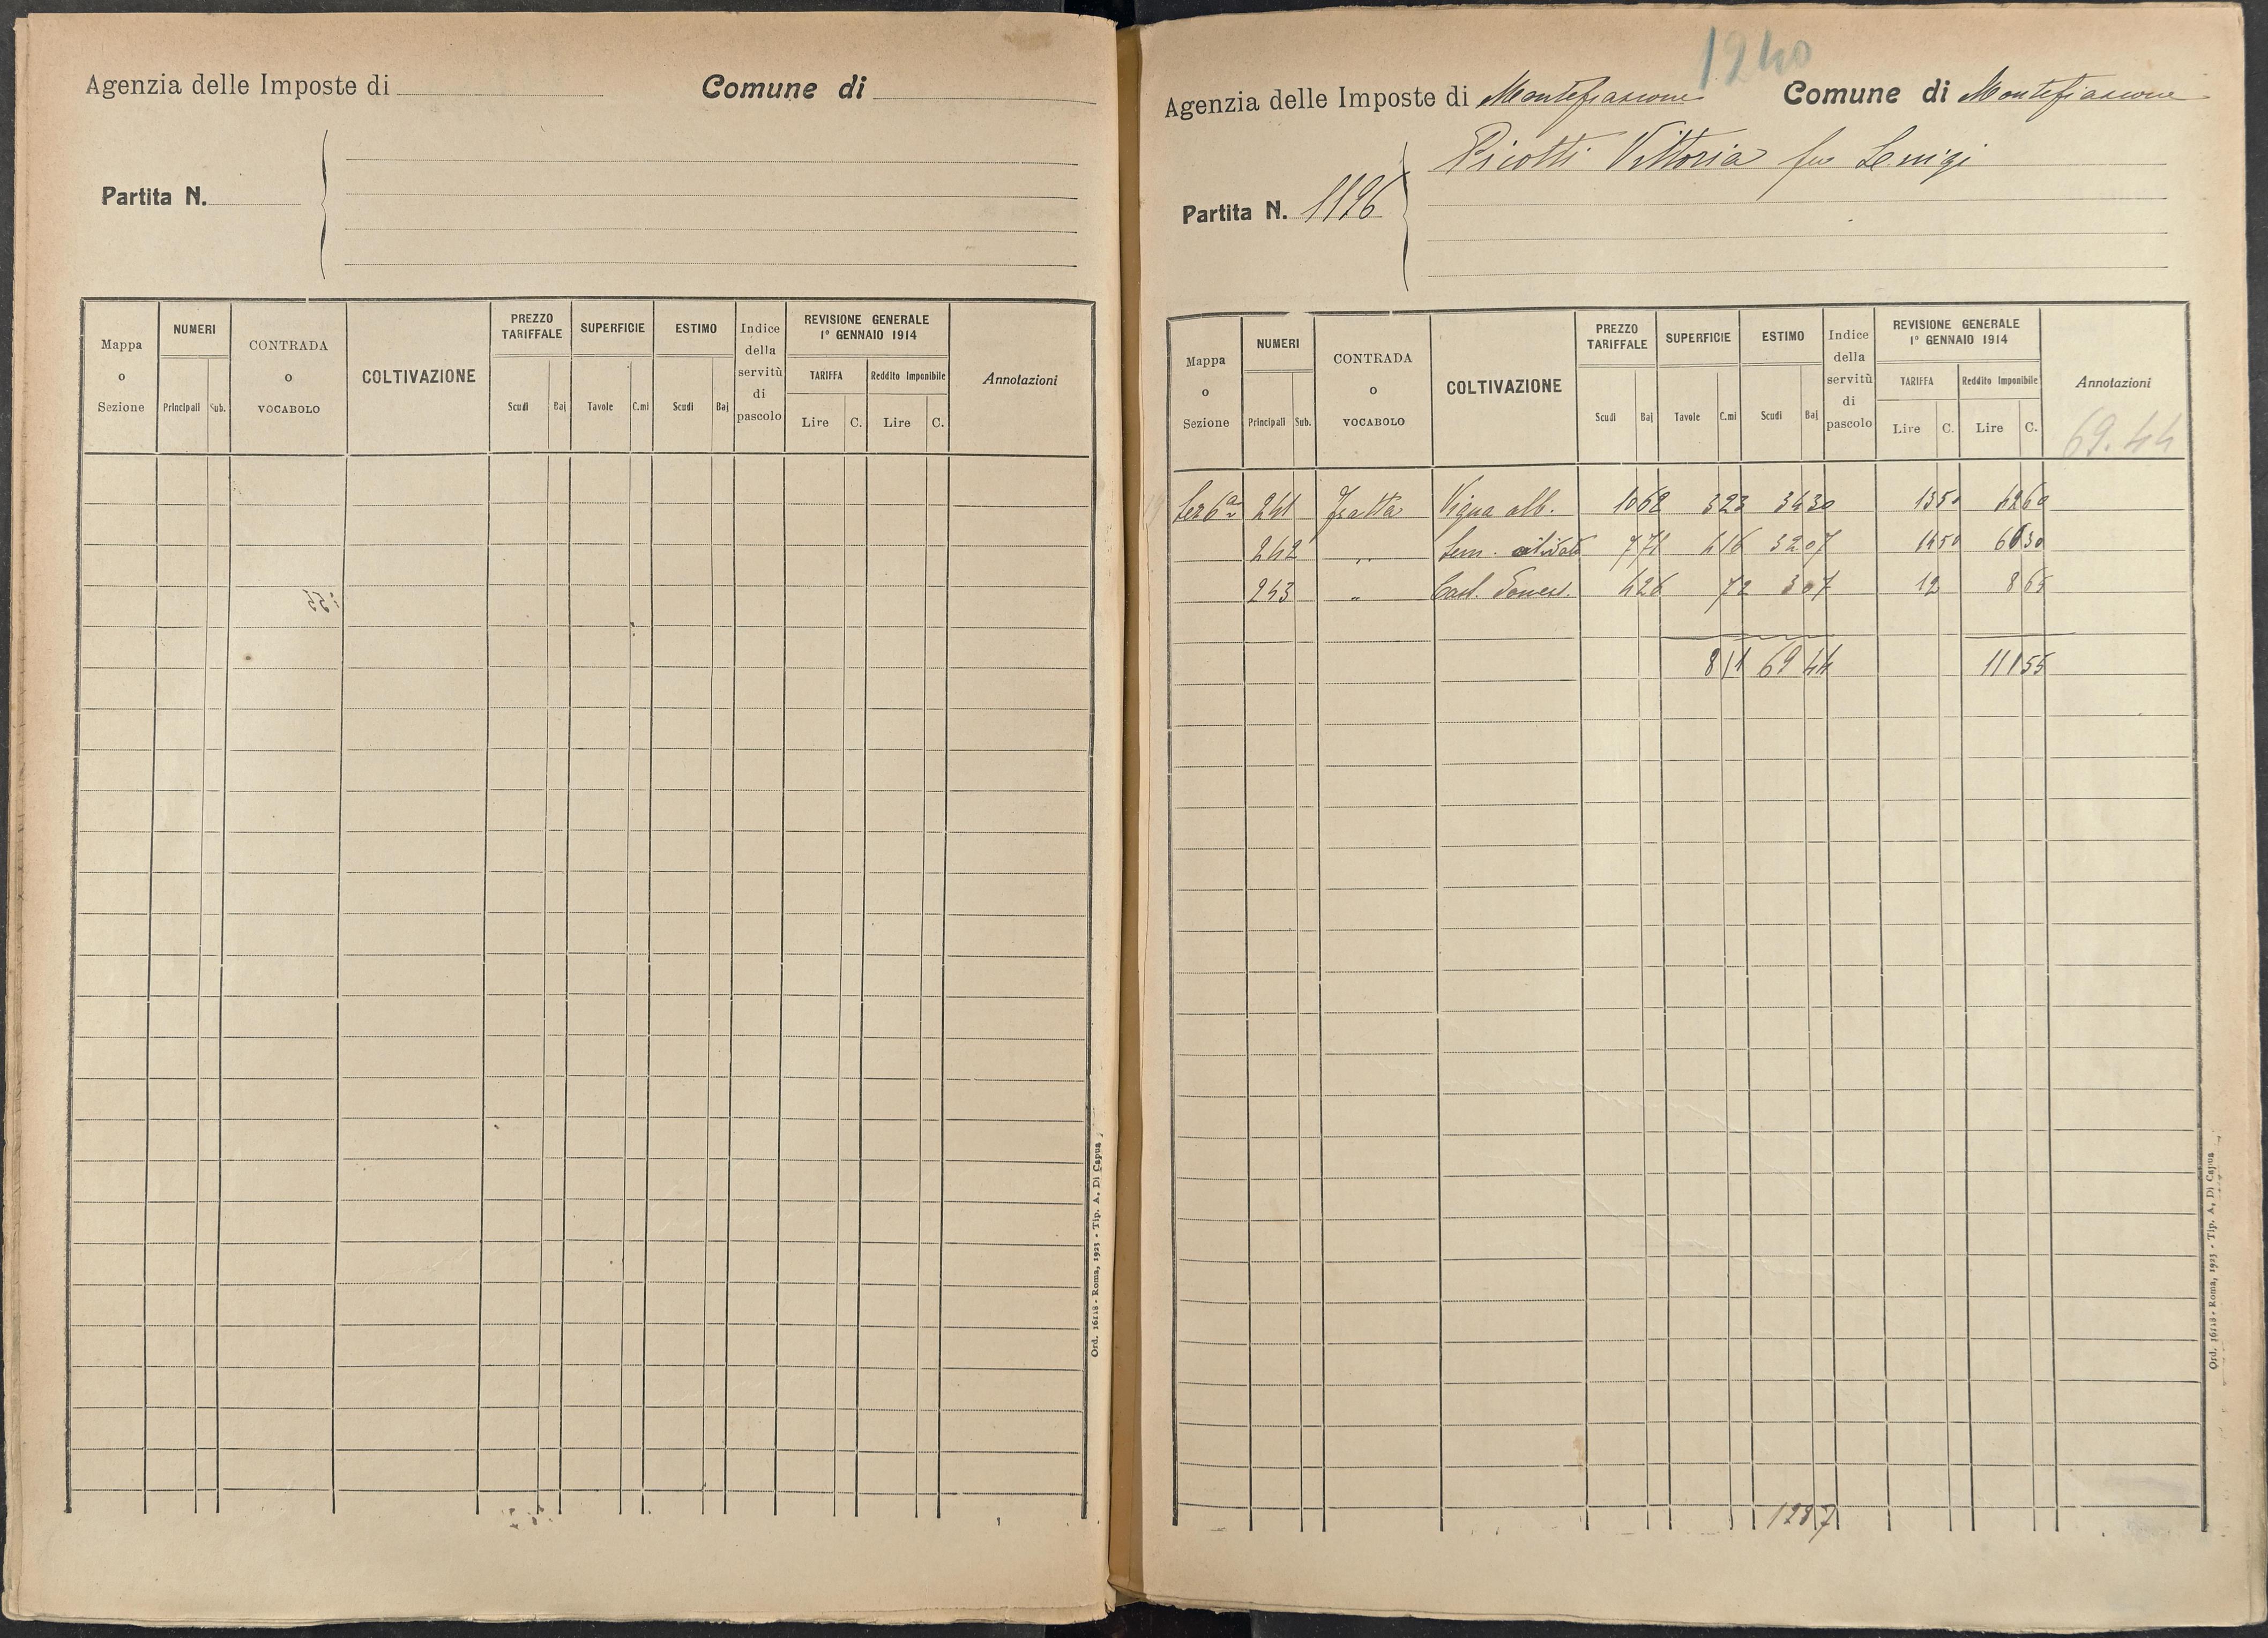 Agenzia delle Imposte di
Comune di
Partita N.
Mappa o Sezione
NUMERI
Principali Sub.
CONTRADA o VOCABOLO
COLTIVAZIONE
PREZZO TARIFFALE
Scudi Baj
SUPERFICIE
Tavole C.mi
ESTIMO
Scudi Baj
Indice della servitù di pascolo
REVISIONE GENERALE
1° GENNAIO 1914
TARIFFA
Lire C.
Reddito Imponibile
Lire C.
Annotazioni
Ord. 16118 - Roma, 1923 - Tip. A. Di Capua
1240
Agenzia delle Imposte di Montefiascone Comune di Montefiascone
Picotti Vittoria fu Luigi
Partita N. 1196
Mappa o Sezione
NUMERI
Principali Sub.
CONTRADA o VOCABOLO
COLTIVAZIONE
PREZZO TARIFFALE
Scudi Baj
SUPERFICIE
Tavole C.mi
ESTIMO
Scudi Baj
Indice della servitù di pascolo
REVISIONE GENERALE
1° GENNAIO 1914
TARIFFA
Lire C.
Reddito Imponibile
Lire C.
Annotazioni
69.44
Sez 6a 241 Fratta Vigna alb. 10 62 3 23 34 30 13 50 42 60
242 " Sem. olivato 7 71 4 16 32 07 14 50 60 30
243 " Cast. 4 26 72 3 07 12 8 65
8 11 69 44 111 55
1237
Ord. 16118 - Roma, 1923 - Tip. A. Di Capua